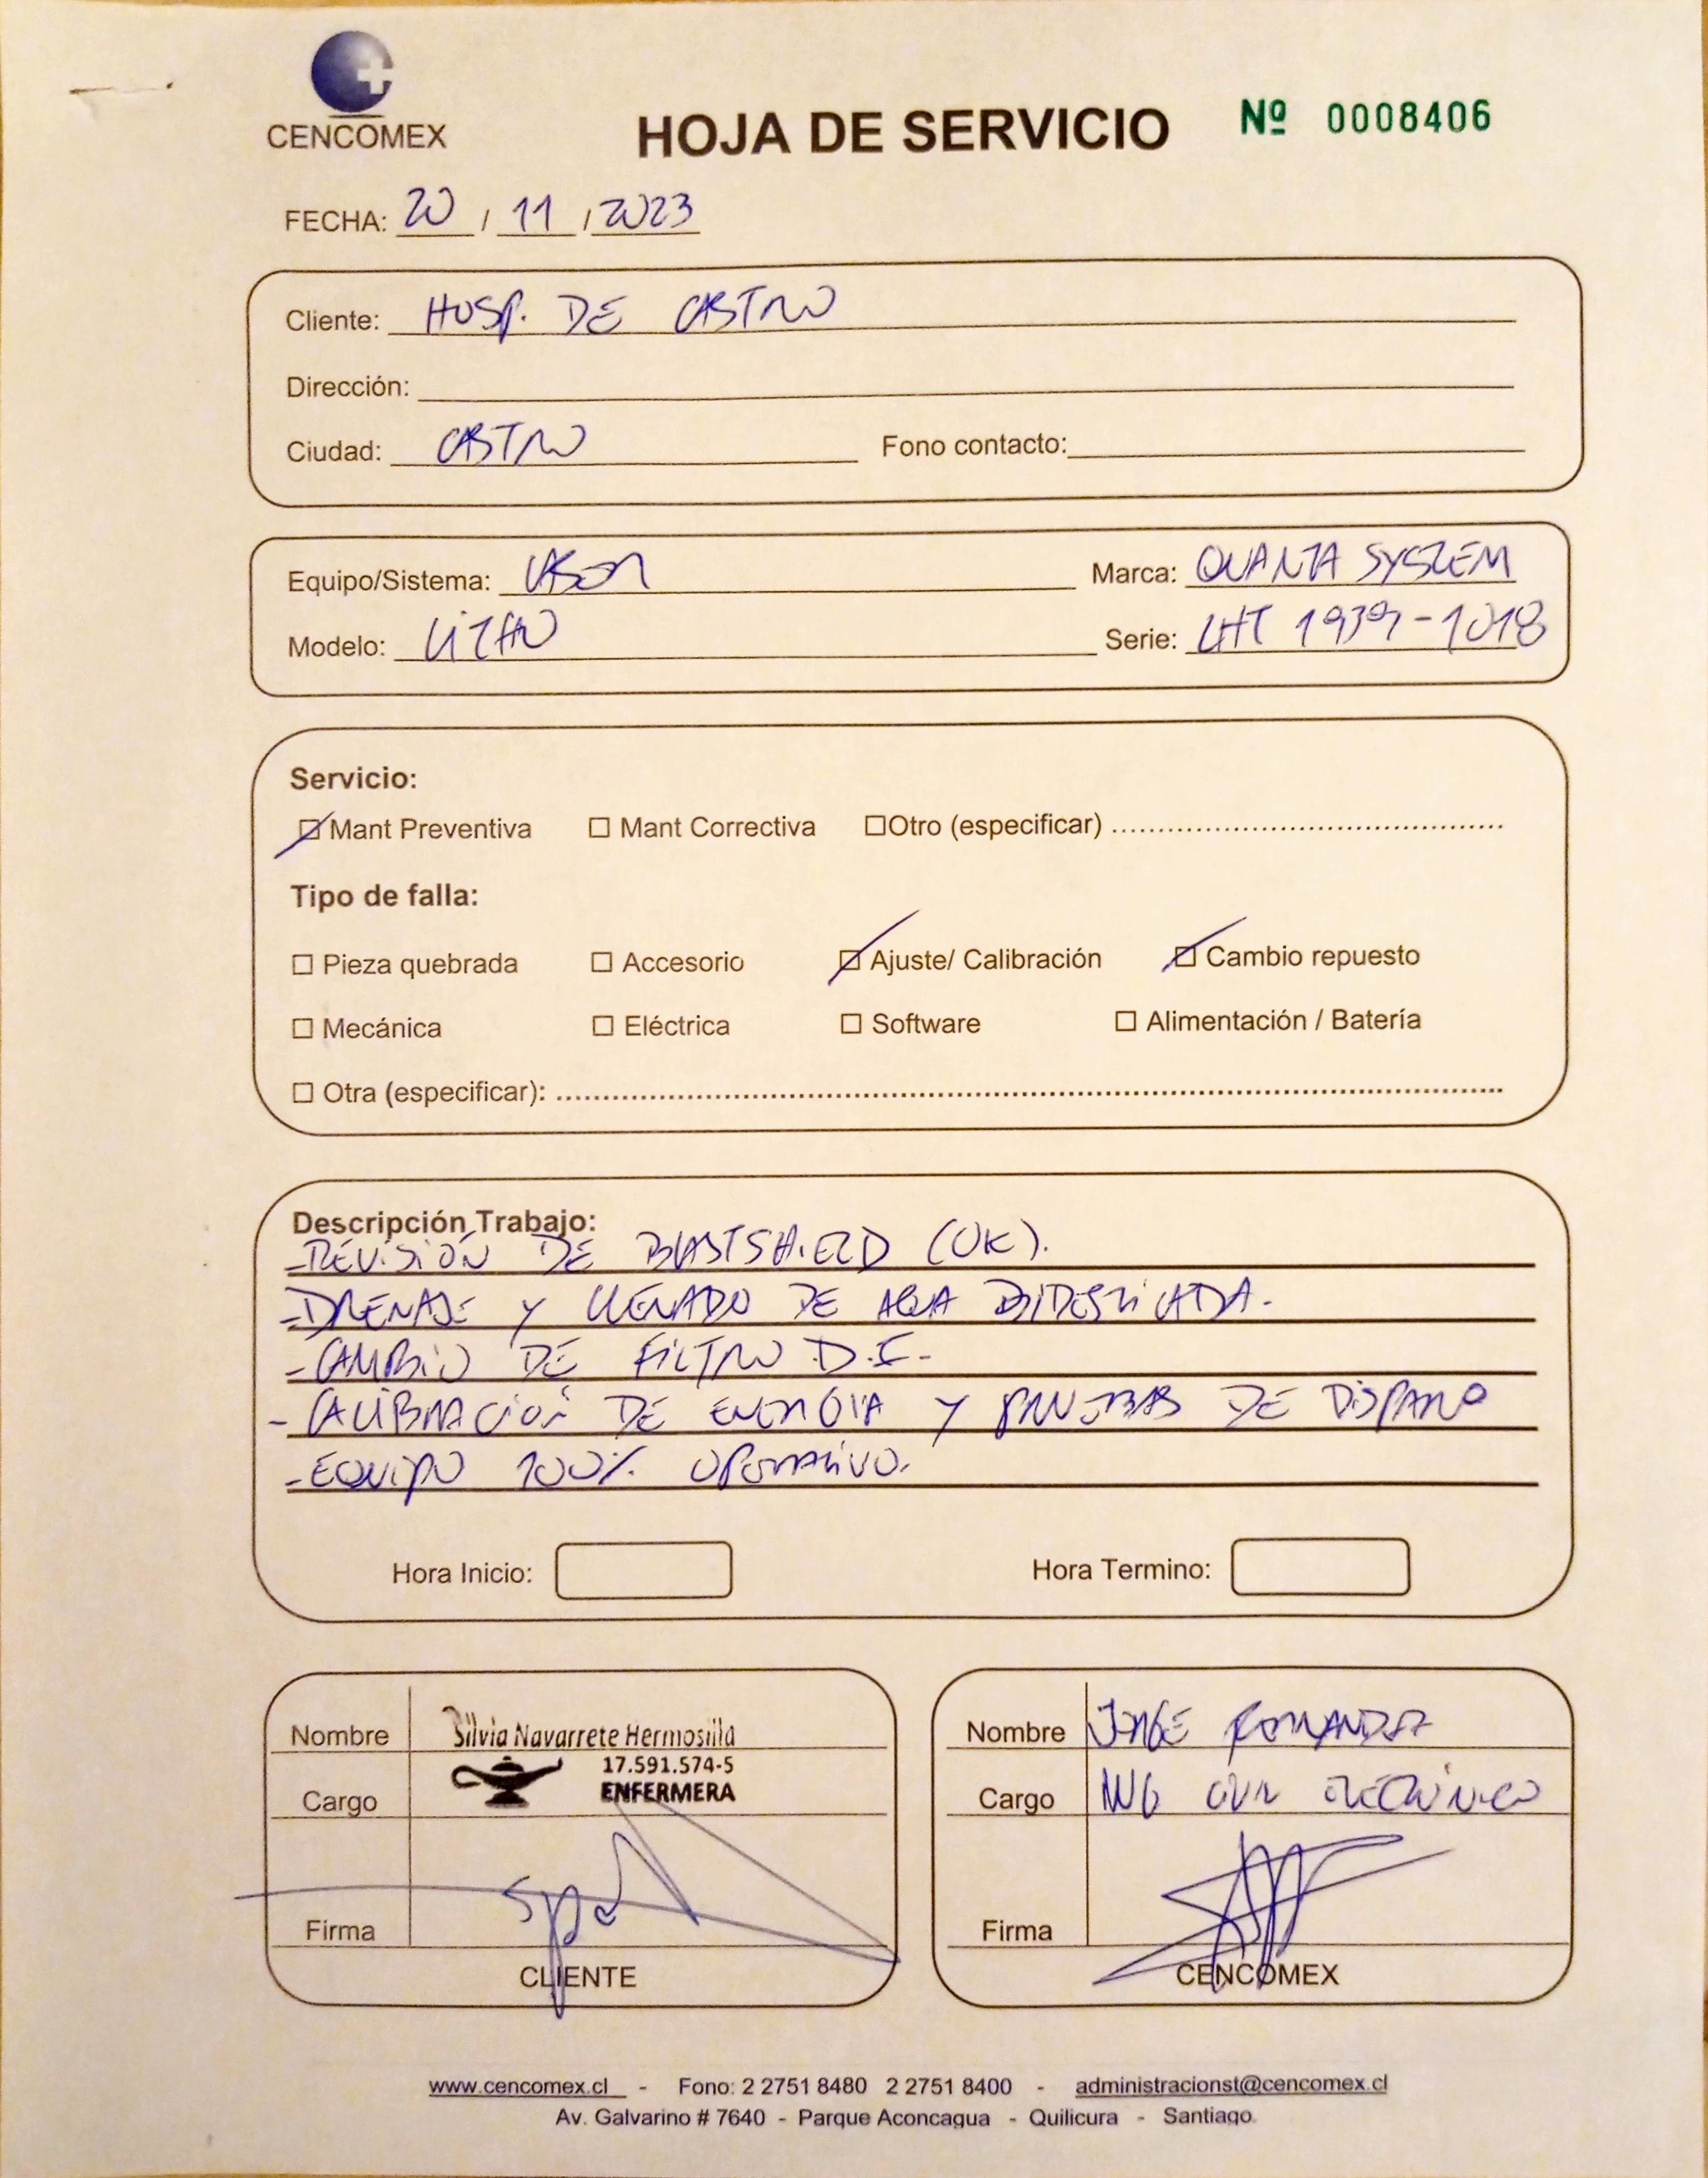 CENCOMEX
HOJA DE SERVICIO Nº 0008406
FECHA: 20 / 11 / 2023
Cliente: HOSP. DE CASTRO
Dirección:
Ciudad: CASTRO Fono contacto:
Equipo/Sistema: LASER Marca: QUANTA SYSTEM
Modelo: LITHO Serie: LHT 1939-1018
Servicio:
☑ Mant Preventiva ☐ Mant Correctiva ☐ Otro (especificar) ........................................
Tipo de falla:
☐ Pieza quebrada ☐ Accesorio ☑ Ajuste/ Calibración ☑ Cambio repuesto
☐ Mecánica ☐ Eléctrica ☐ Software ☐ Alimentación / Batería
☐ Otra (especificar): ........................................
Descripción Trabajo:
-REVISIÓN DE BLASTSHIELD (OK).
-DRENAJE Y LLENADO DE AGUA BIDESTILADA.
-CAMBIO DE FILTRO D.I.
-CALIBRACIÓN DE ENERGIA Y PRUEBAS DE DISPARO
-EQUIPO 100% OPERATIVO.
Hora Inicio: Hora Termino:
Nombre Silvia Navarrete Hermosilla
17.591.574-5
Cargo ENFERMERA
Firma
CLIENTE
Nombre JORGE FERNANDEZ
Cargo ING CIVIL ELECTRÓNICO
Firma
CENCOMEX
www.cencomex.cl - Fono: 2 2751 8480 2 2751 8400 - administracionst@cencomex.cl
Av. Galvarino # 7640 - Parque Aconcagua - Quilicura - Santiago